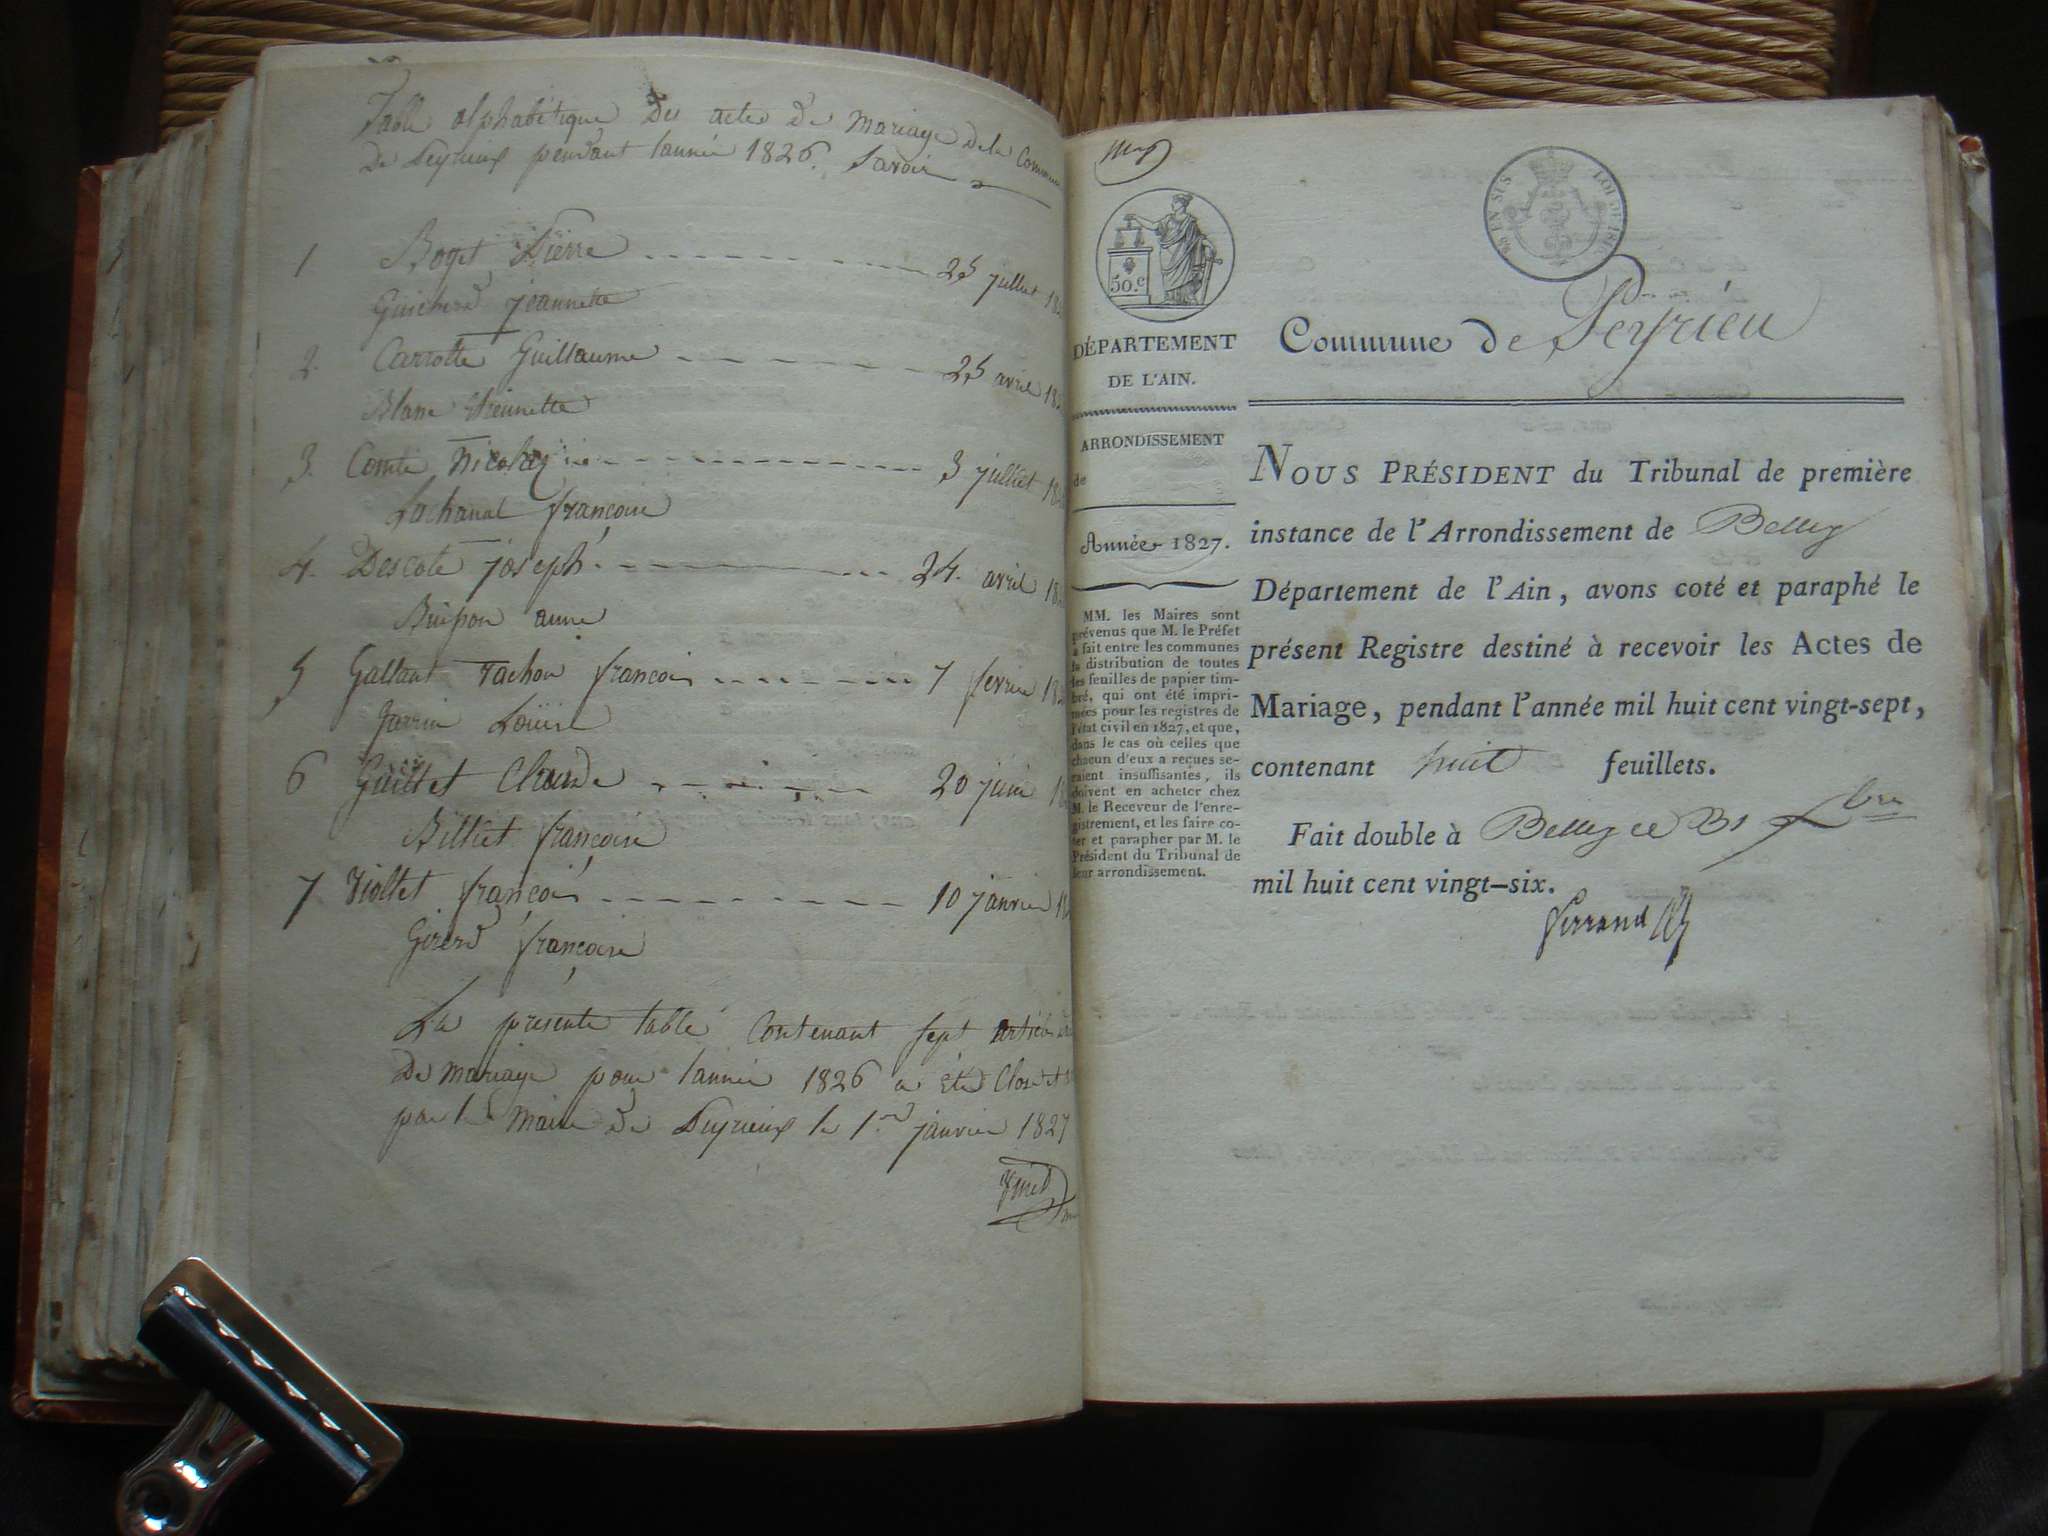 Table alphabétique des actes de mariage de la Commune
de Peyrieux pendant lannée 1826. Savoir
1 Boget Pierre 25 juillet
Guicherd jeannette
2. Carrotte Guillaume 25 avril
Blanc
3. Comte Nicolas 3 juillet
Lachanal françoise
4. Descote joseph 24. avril
Buisson anne
5 Gallant Tachon francois 7 fevrier
Jarrin Louise
6 Guillet Claude 20 juin
Billiet françoise
7 Viollet françois 10 janvier
Girerd françoise
La présente table Contenant sept articles
de mariage pour lannée 1826 a été Close et
par le Maire de Peyrieux le 1er janvier 1827
50.c
DÉPARTEMENT
DE L'AIN.
ARRONDISSEMENT
de
Année 1827.
MM. les Maires sont
prévenus que M. le Préfet
a fait entre les communes
la distribution de toutes
les feuilles de papier tim-
bré, qui ont été impri-
mées pour les registres de
l'état civil en 1827, et que,
dans le cas où celles que
chacun d'eux a reçues se-
raient insuffisantes, ils
doivent en acheter chez
M. le Receveur de l'enre-
gistrement, et les faire co-
ter et parapher par M. le
Président du Tribunal de
leur arrondissement.
Commune de Peyrieu
NOUS PRÉSIDENT du Tribunal de première
instance de l'Arrondissement de Belley
Département de l'Ain, avons coté et paraphé le
présent Registre destiné à recevoir les Actes de
Mariage, pendant l'année mil huit cent vingt-sept,
contenant huit feuillets.
Fait double à Belley ce
mil huit cent vingt-six.